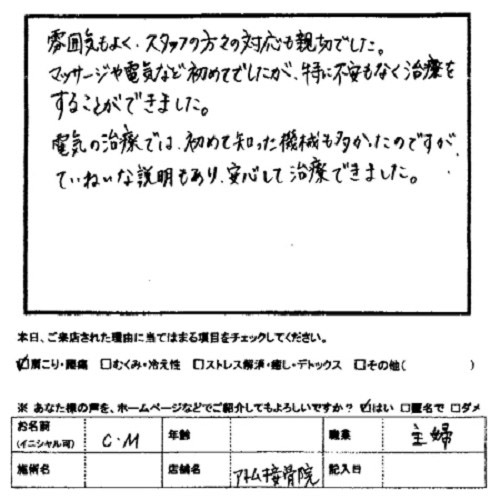 雰囲気もよく、スタッフの方々の対応も親切でした。
マッサージや電気など初めてでしたが、特に不安もなく治療を
することができました。
電気の治療では、初めて知った機械も多かったのですが、
ていねいな説明もあり、安心して治療できました。
本日、ご来店された理由に当てはまる項目をチェックしてください。
☑肩こり・腰痛 □むくみ・冷え性 □ストレス解消・癒し・デトックス □その他( )
※ あなた様の声を、ホームページなどでご紹介してもよろしいですか? ☑はい □匿名で □ダメ
お名前 (イニシャル可) C.M 年齢 職業 主婦
施術名 店舗名 アトム接骨院 記入日